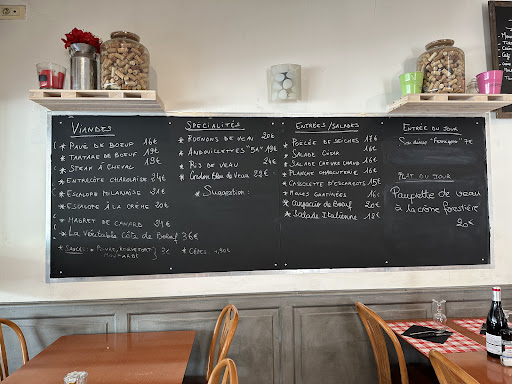 VIANDES
* PAVÉ DE BOEUF 16€
* TARTARE DE BOEUF 19€
* STEAK À CHEVAL 19€
* ENTRECÔTE CHAROLAISE 24€
* ESCALOPE MILANAISE 21€
* ESCALOPE À LA CRÈME 20€
* MAGRET DE CANARD 21€
* La Véritable Côte de Boeuf 36€
* SAUCES: * POIVRE, ROQUEFORT
MOUTARDE } 3€ * CÈPES 4,50€
SPÉCIALITÉS
* ROGNONS DE VEAU 20€
* ANDOUILLETTES "5A" 19€
* RIS DE VEAU 24€
* Cordon bleu de Veau 22€
* Suggestion:
ENTRÉES/SALADES
* POÊLÉE DE SEICHES 17€
* SALADE CÉSAR
* SALADE CHÈVRE CHAUD 16€
* PLANCHE CHARCUTERIE 16€
* CASSOLETTE D'ESCARGOTS 15€
* MOULES GRATINÉES 16€
* Carpaccio de Boeuf 20€
* Salade Italienne 18€
ENTRÉE DU JOUR
7€
PLAT DU JOUR
Paupiette de veau
à la crème forestière
20€